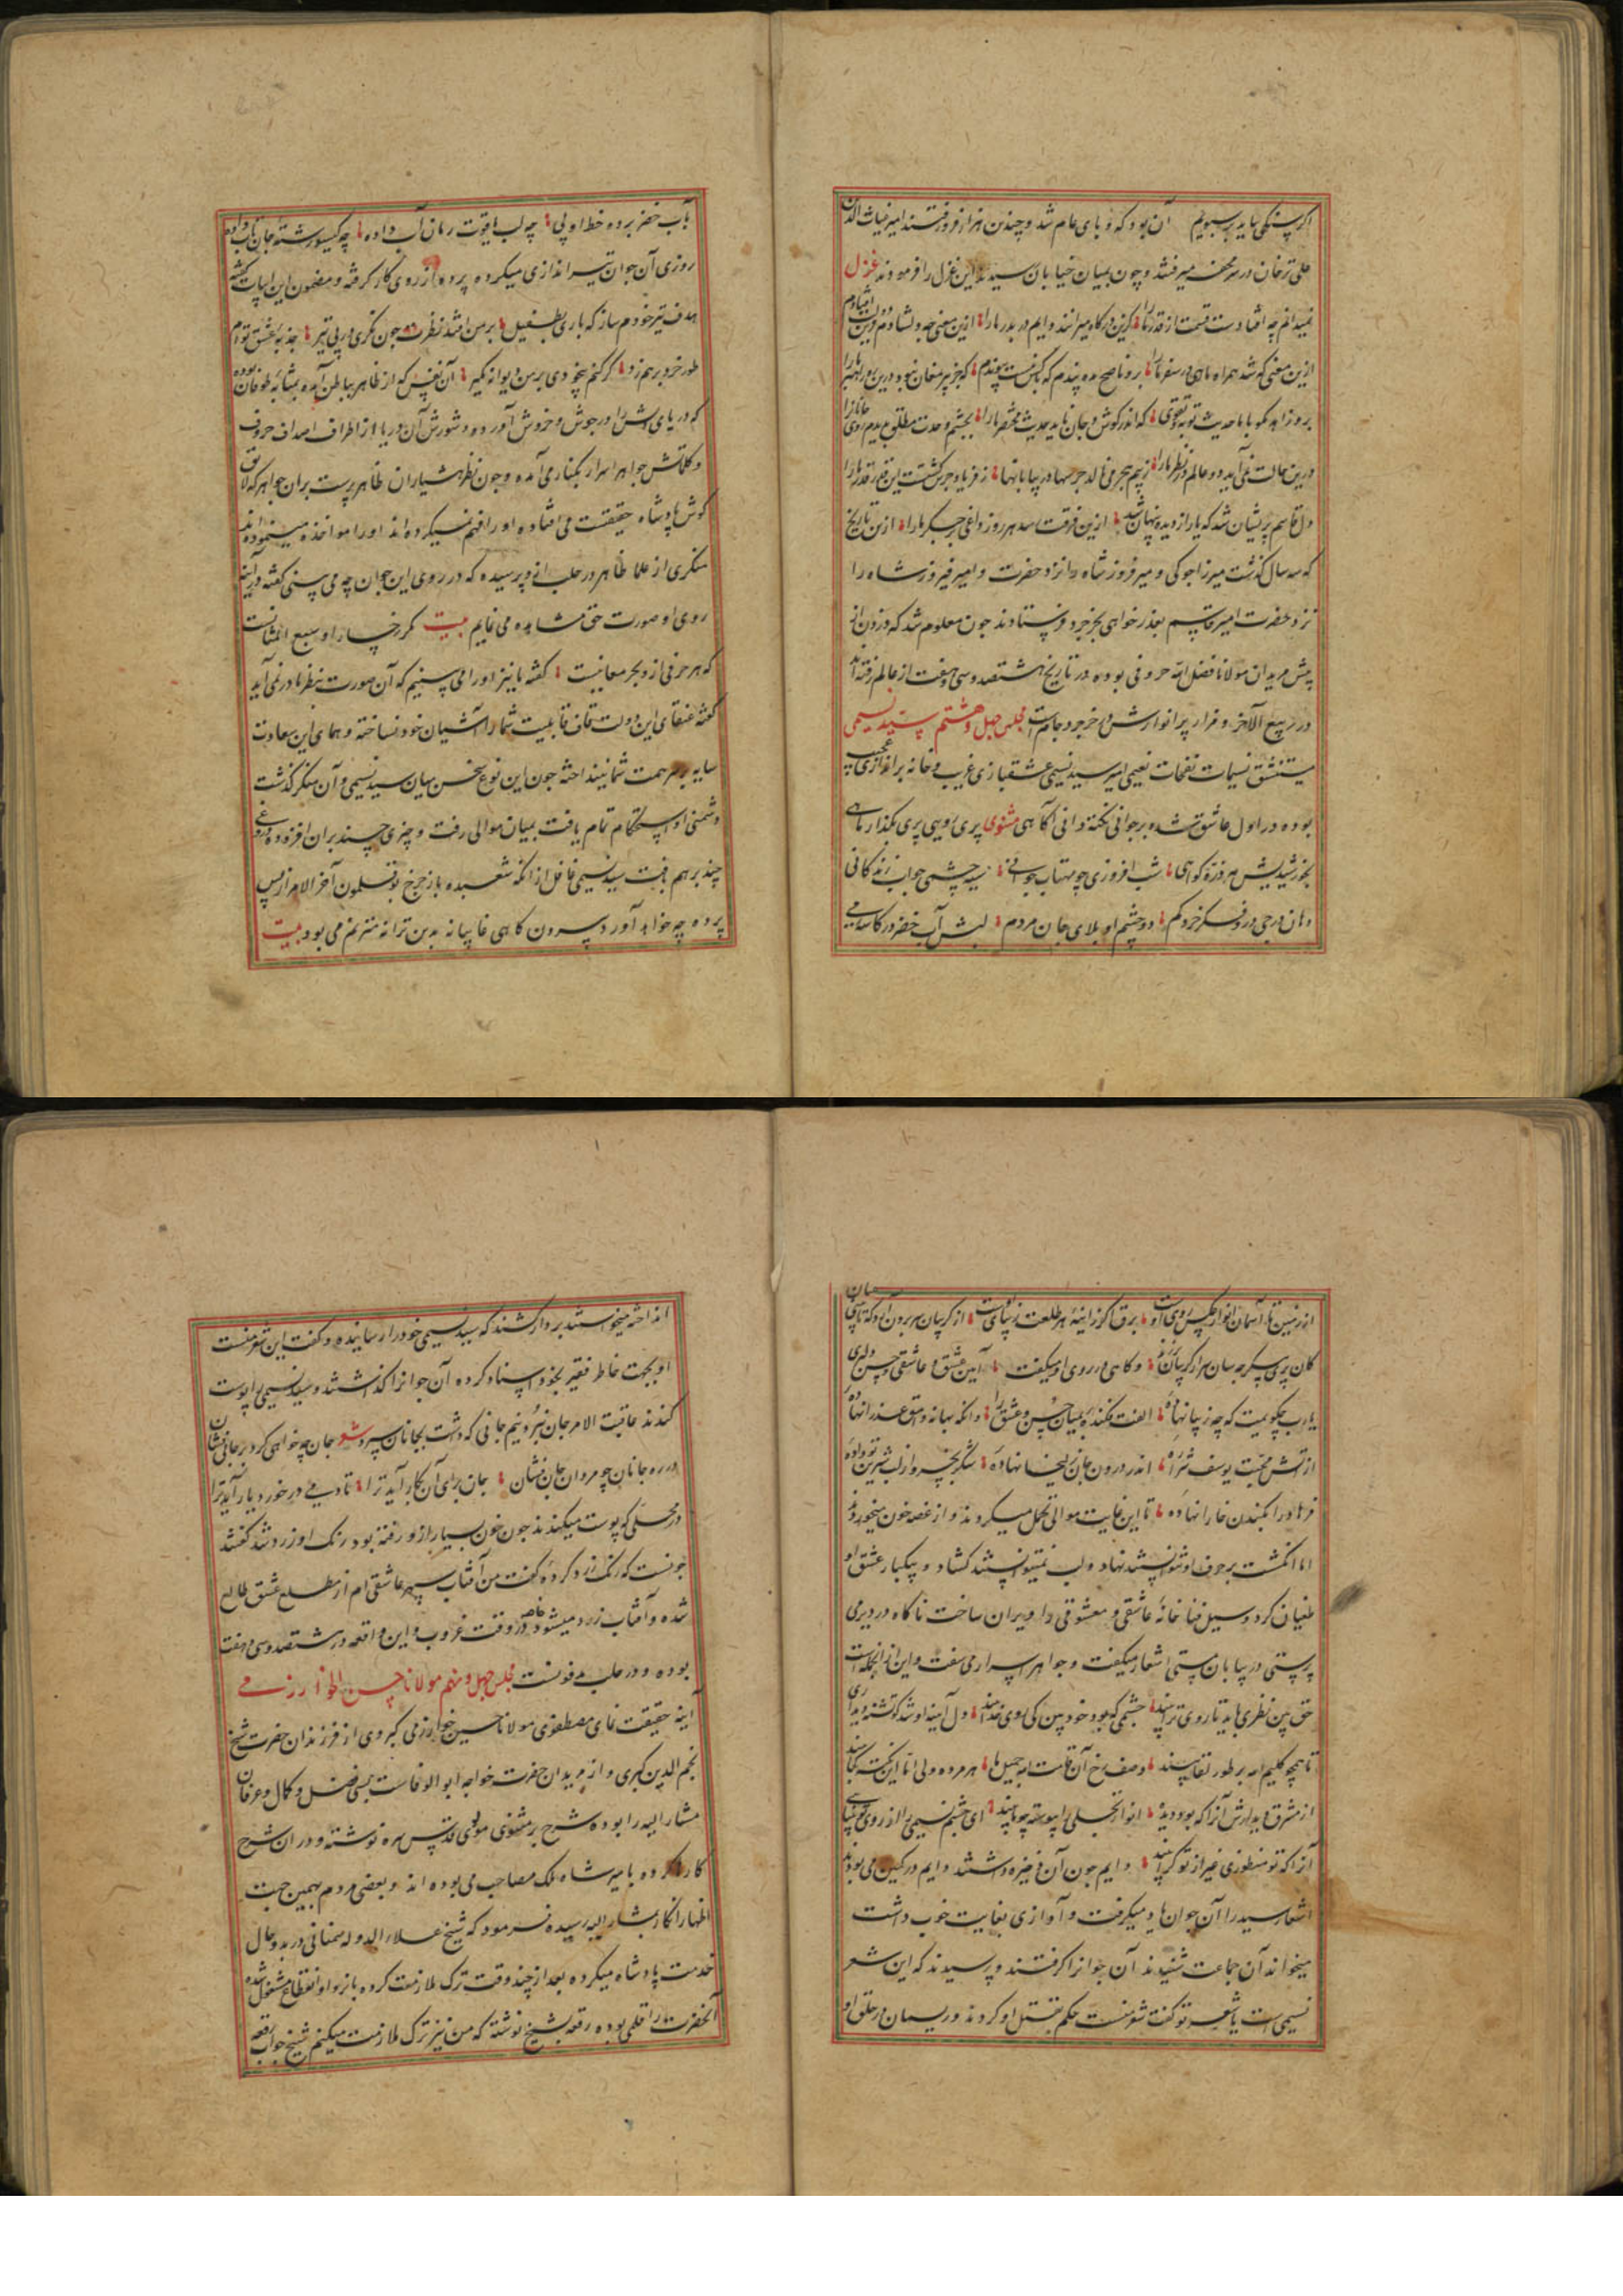 اگر سنگی بباید بر سبویم آن بود که وبای عام شد و چندین هزار نفر رفتند امیر غیاث الدین
علی ترخان در محفه میرفتند و چون بمیان خیابان رسیده این غزل را فرمودند غزل
نمیدانم چه افتادست قسمت از قدر ما را کزین درگاه میرانند دایم در بدر ما را ازین معنی چه دلشادم
ازین معنی که شد همراه ما هی در سفر ما را برو ناصح مده پندم که با کس نیست پیوندم که جز پیر مغان نبود درین ره راهبر ما را
برو زاهد مگو با ما حدیث توبه و تقوی که اندر گوش جان ناید حدیث مختصر ما را بچشم وحدت مطلق بدیدم
درین حالت نمی‌آید دو عالم در نظر ما را ز بیم هجر می‌نالد جرسها در بیابانها ز فریاد جرس گشتست این قدر ما را
دل قاسم پریشان شد که یار از دیده پنهان شد ازین فرقت رسد هر روز داغی بر جگر ما را ازین تاریخ
که سه سال گذشت میرزا جوکی و میر فیروز شاه را نزد حضرت و امیر فیروز شاه را
نزد حضرت امیر قاسم بعذر خواهی بخرجرد فرستادند چون معلوم شد که
پیش مریدان مولانا فضل الله حروفی بوده در تاریخ هشتصد و سی و هفت از عالم رفته اند
در ربیع الآخر و مزار پر انوارش در خرجرد جامست مجلس چهل و هشتم سید نسیمی
مستنشق نسیمات نفحات نعیمی امیر سید نسیمی عشقبازی غریب و خانه براندازی عجیب
بوده در اول عاشق شده بر جوانی نکته دانی آگاهی مثنوی پری رویی پری بگذار ماهی
بخورشیدیش هر ذره گواهی شب افروزی چو مهتاب جوانی سیه چشمی چو آب زندگانی
دهان درجی درو شکر خرد گم دو چشم او بلای جان مردم لبش آب خضر در کاسه می
بآب خضر برده خط او پی چه لب یاقوت رمان آب داده چه گیسو رشته جان تاب داده
روزی آن جوان تیر اندازی میکرده پرده از روی کار گرفته و مضمون این ابیات گفته
هدف تیر خودم ساز که باری بطفیل بر من افتد نظرت چون نگری در پی تیر جذبه عشق توام
طور خرد بر هم زد گر کنم بیخودی بر من دیوانه مگیر آن نفس که از ظاهر بباطن آمده بمثابه طوفان بوده
که دریای اسرار در جوش و خروش آورده و شورش آن دریا از اطراف اصداف حروف
و کلماتش جواهر اسرار بکنار می‌آمده و چون نظر هشیاران ظاهر پرست بران جواهر که لایق
گوش پادشاه حقیقت می افتاده او را فهم نمیکرده اند او را مواخذه مینموده اند
منکری از علما ظاهر در حلب ازو پرسیده که در روی این جوان چه می بینی گفته در آینه
روی او صورت حق مشاهده می نمایم بیت گر رخسار او سبع المثانیست
که هر حرفی ازو بحر معانیست گفته ما نیز او را می بینیم که آن صورت بنظر ما در نمی آید
گفته عنقای این دولت قاف قابلیت شما را آشیان خود نساخته و همای این سعادت
سایه بر سر همت شما نینداخته چون این نوع سخن میان سید نسیمی و آن منکر گذشت
دشمنی او استحکام تمام یافت بمیان موالی رفت و چیزی چند بران افزوده
چند بر هم بافت سید نسیمی غافل از آنکه شعبده باز چرخ بوقلمون آخر الامر از پس
پرده چه خواهد آورد بیرون گاهی غایبانه بدین ترانه مترنم می بود بیت
از زمین تا آسمان انوار عکس روی اوست برق کز آینه هر طلعت زیبای اوست از گریبان سر برون آرد که تا بینی
کان پری پیکر چه سان سر از گریبان بر زده و گاهی در روی او میگفت آیین عشق و عاشقی و حسن و دلبری
یا رب چگویمت که چه زیبا نهاده الفت فکنده بمیان حسن و عشق را وانگه بهانه وامق و عذرا نهاده
از آتش محبت یوسف شراره اندر درون جان زلیخا نهاده شکر بخسرو از لب شیرین تو داده
فرهاد را بکندن خارا نهاده تا این غایت موالی تحمل میکردند و از غصه خون میخوردند
اما انگشت بر حرف او نتوانستند نهاد و لب نمیتوانستند گشاد و بیکبار عشق او
طغیان کرد و سیل فنا خانه عاشقی و معشوقی را ویران ساخت ناگاه در دیر می
پرستی در بیابان مستی اشعار میگفت و جواهر اسرار می سفت و این از آنجمله است
حق بین نظری باید تا روی ترا بیند چشمی که بود خود بین کی روی خدا بیند دل آینه او شد کو تشنه دیداری
تا همچو کلیم الله بر طور لقا بیند وصف رخ آن قامت
از مشرق دیدارش آنرا که بود دیده انوار تجلی را پیوسته چو ما بیند ای چشم نسیمی را از روی تو بینایی
آنرا که تو منظوری غیر از تو کرا بیند دایم چون آن ذخیره داشتند و ایم در کمین می بودند
اشعار سید را آن جوان یاد میگرفت و آوازی بغایت خوب داشت
میخواند آن جماعت شنیدند آن جوانرا گرفتند و پرسیدند که این شعر
نسیمی است یا شعر تو گفت شعر منست حکم بقتل او کردند و ریسمان در حلق او
انداخته میخواستند بر دار کشند که سید نسیمی خود را رسانیده و گفت این شعر منست
او بجهت خاطر فقیر بخود اسناد کرده آن جوانرا گذاشتند و سید نسیمی را پوست
کندند عاقبت الامر جان نبرد و نیم جانی که داشت بجانان سپرد شعر جان چه خواهی کرد بر جانان فشان
در ره جانان چو مردان جان فشان جان برای آن بکار آید ترا تا دمی در خورد یار آید ترا
در محلی که پوست میکندند چون خون بسیار ازو رفته بود رنگ او زرد شد گفتند
چونست که رنگ زرد کرده گفت من آفتاب سپهر عاشقی ام از مطلع عشق طالع
شده و آفتاب زرد میشود خاصه در وقت غروب و این واقعه در هشتصد و سی و هفت
بوده و در حلب مدفونست مجلس چهل و نهم مولانا حسین الخوارزمی
آینه حقیقت نمای مصطفوی مولانا حسین خوارزمی کبروی از فرزندان حضرت شیخ
نجم الدین کبری و از مریدان حضرت خواجه ابو الوفاست بسی فضل و کمال و عرفان
مشار الیه را بوده شرح بر مثنوی مولوی قدس سره نوشته و در آن شرح
کار کرده با میر شاه ملک مصاحب می بوده اند و بعضی مردم بهمین جهت
اظهار انکار بمشار الیه رسیده فرمود که شیخ علاء الدوله سمنانی در بدو حال
خدمت پادشاه میکرده بعد از چند وقت ترک ملازمت کرده بانزوا و انقطاع مشغول شده
آنحضرت را قلمی بوده رقعه بشیخ نوشته که من نیز ترک ملازمت میکنم شیخ جواب رقعه